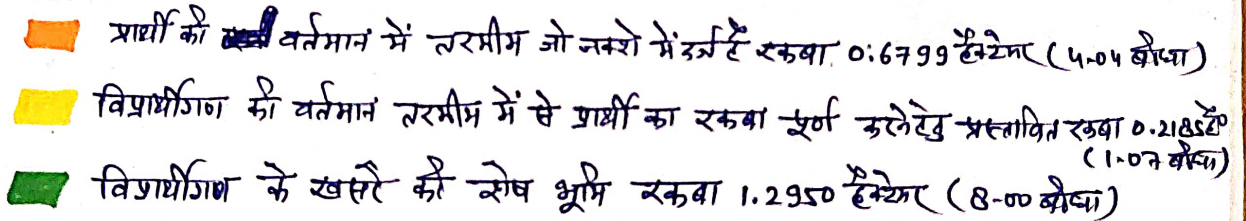 प्रार्थी की वर्तमान में तरमीम जो नक्शे में दर्ज है रकबा 0.6799 हैक्टेयर (4-04 बीघा)
विप्रार्थीगण की वर्तमान तरमीम में से प्रार्थी का रकबा पूर्ण करने हेतु प्रस्तावित रकबा 0.2185 है०
(1-07 बीघा)
विप्रार्थीगण के खसरे की शेष भूमि रकबा 1.2950 हैक्टेयर (8-00 बीघा)